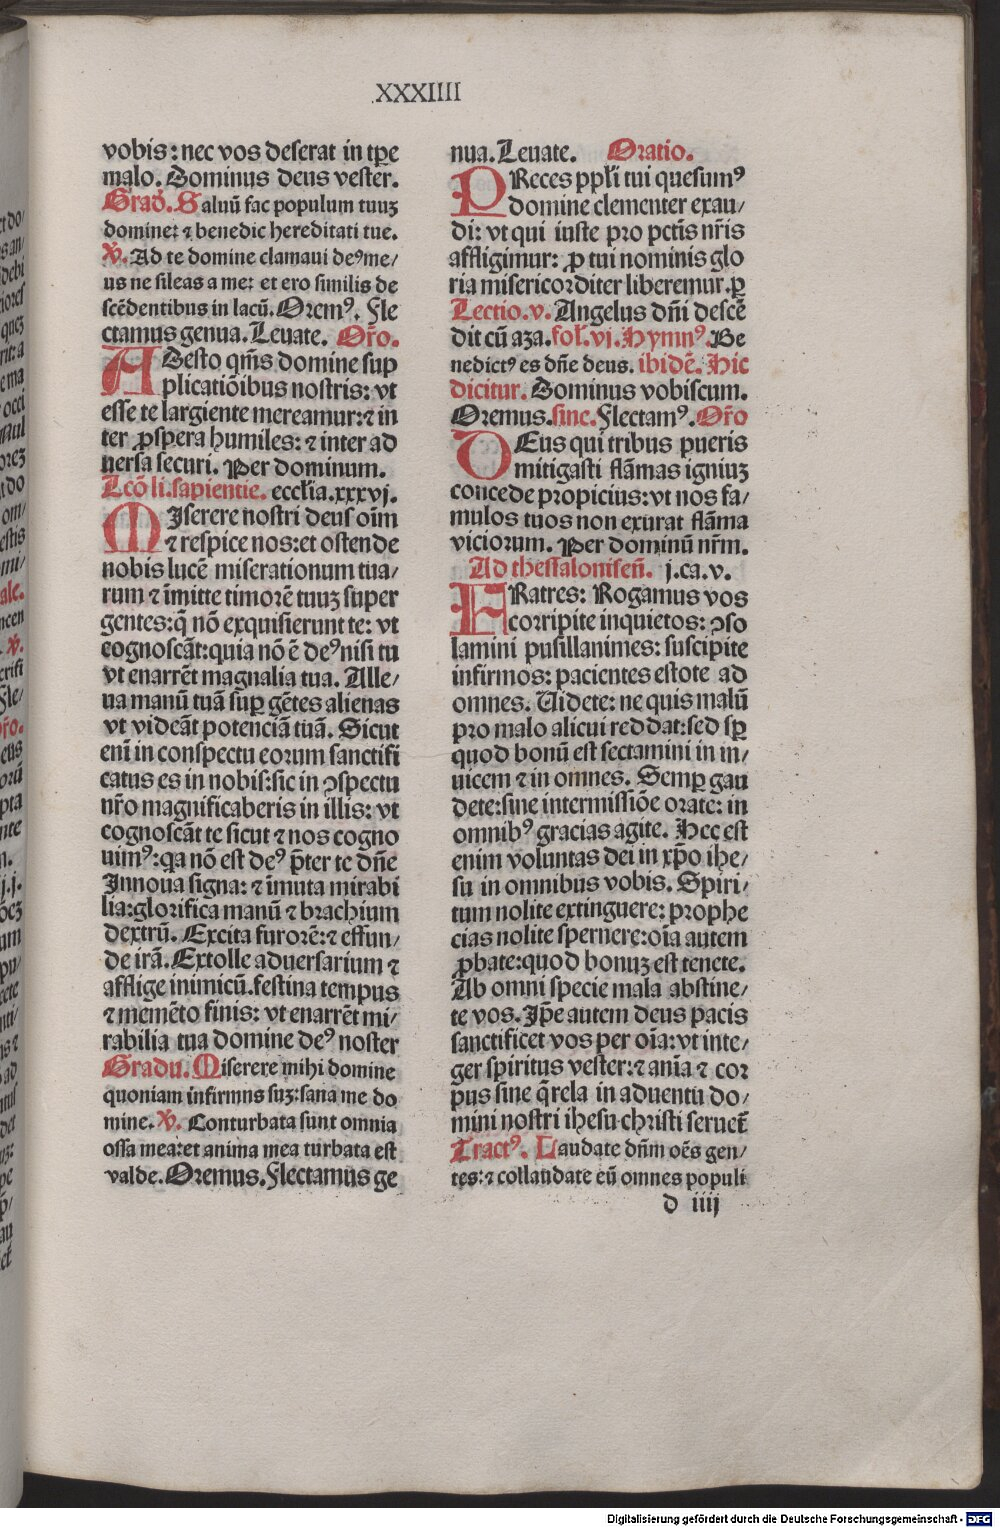 XXXIIII
vobis: nec vos deserat in tꝑe
malo. Dominus deus vester.
Grad̛. Saluū fac populum tuuꝫ
domine: ⁊ benedic hereditati tue.
℣. Ad te domine clamaui deꝰ me/
us ne sileas a me: et ero similis de
scēdentibus in lacū. Oremꝰ. Fle
ctamus genua. Leuate. Or̄o.
ADesto qm̄s domine sup
plicatiōibus nostris: vt
esse te largiente mereamur: ⁊ in
ter ꝓspera humiles: ⁊ inter ad
uersa securi. Per dominum.
Lcō li. sapientie. eccl̄ia. xxxvj.
MIserere nostri deus oīm
⁊ respice nos: et ostende
nobis lucē miserationum tua/
rum ⁊ īmitte timorē tuuꝫ super
gentes: q̄ nō exquisierunt te: vt
cognoscāt: quia nō ē deꝰ nisi tu
vt enarrēt magnalia tua. Alle/
ua manū tuā suꝑ gētes alienas
vt videāt potenciā tuā. Sicut
eni̅ in conspectu eorum sanctifi
catus es in nobis: sic in ↄspectu
nr̄o magnificaberis in illis: vt
cognoscāt te sicut ⁊ nos cogno
uimꝰ: qa nō est deꝰ p̄ter te dn̄e
Innoua signa: ⁊ īmuta mirabi
lia: glorifica manū ⁊ brachium
dextrū. Excita furorē: ⁊ effun/
de irā. Extolle aduersarium ⁊
afflige inimicū. festina tempus
⁊ memēto finis: vt enarrēt mi/
rabilia tua domine deꝰ noster
Gradu. Miserere mihi domine
quoniam infirmns suꝫ: sana me do
mine. ℣. Conturbata sunt omnia
ossa mea: et anima mea turbata est
valde. Oremus. Flectamus ge
nua. Leuate. Oratio.
PReces ppl̄i tui quesumꝰ
domine clementer exau/
di: vt qui iuste pro pctīs nr̄is
affligimur: ꝓ tui nominis glo
ria misericorditer liberemur. ꝑ
Lectio. v. Angelus dn̄i descē
dit cū aza. fol. vj. Hymnꝰ. Be
nedictꝰ es dn̄e deus. ibidē. Hic
dicitur. Dominus vobiscum.
Oremus. sine. Flectamꝰ. Or̄o
DEus qui tribus pueris
mitigasti flāmas igniuꝫ
concede propicius: vt nos fa/
mulos tuos non exurat flāma
viciorum. Per dominū nr̄m.
Ad thessalonisen̄. j. ca. v.
FRatres: Rogamus vos
corripite inquietos: ↄso
lamini pusillanimes: suscipite
infirmos: pacientes estote ad
omnes. Uidete: ne quis malū
pro malo alicui reddat: sed sꝑ
quod bonū est sectamini in in/
uicem ⁊ in omnes. Semꝑ gau
dete: sine intermissiōe orate: in
omnibꝰ gracias agite. Hec est
enim voluntas dei in xp̄o ihe/
su in omnibus vobis. Spiri/
tum nolite extinguere: prophe
cias nolite spernere: oīa autem
ꝓbate: quod bonuꝫ est tenete.
Ab omni specie mala abstine/
te vos. Ip̄e autem deus pacis
sanctificet vos per oīa: vt inte/
ger spiritus vester: ⁊ anīa ⁊ cor
pus sine q̄rela in aduentu do/
mini nostri ihesu christi seruet̄
Tractꝰ. Laudate dn̄m oēs gen/
tes: ⁊ collaudate eū omnes populi
d iiij
Digitalisierung gefördert durch die Deutsche Forschungsgemeinschaft - DFG